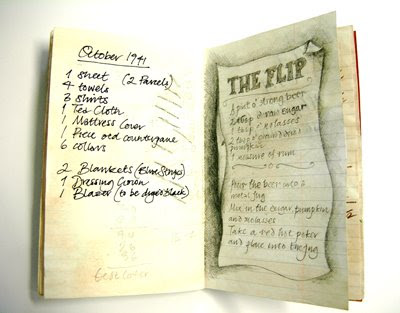 October 1941
1 sheet (2 Parcels)
4 towels
3 shirts
1 Tea Cloth
1 Mattress Cover
1 Piece old counterpane
6 collars
2 Blankets (Blue Stripe)
1 Dressing Gown
1 Blazer (to be dyed Black)
THE FLIP
½ pint o' strong beer
2 tbsp o' raw sugar
1 tbsp molasses
2 tbsp o'
pumpkin
1 measure of rum
Pour the beer into a
metal jug
Mix in the sugar, pumpkin
and molasses
Take a red hot poker
and place into the jug